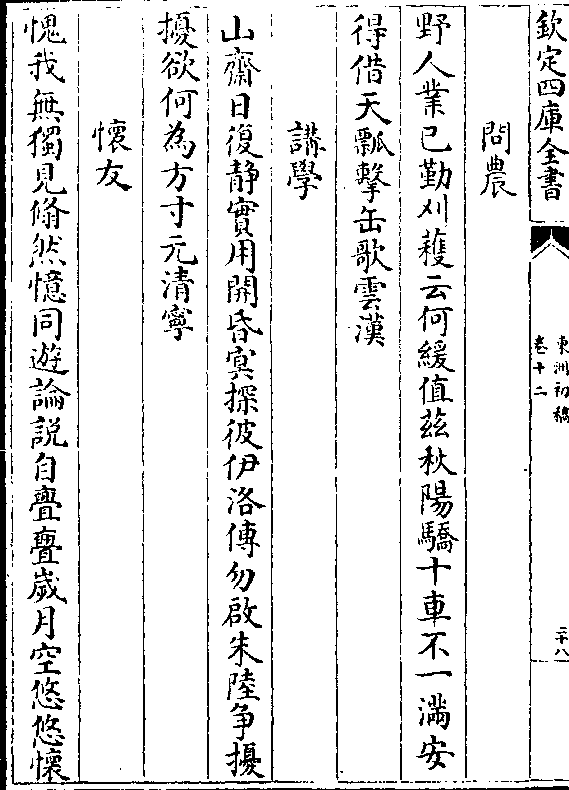 欽定四庫全書
東洲初稿
卷十二
二十八
問農
野人業已勤刈穫云何緩值茲秋陽驕十車不一滿安
得借天瓢擊缶歌雲漢
講學
山齋日復静實用開昏㝠探彼伊洛傳勿啟朱陸争擾
擾欲何為方寸元清寧
懷友
愧我無獨見翛然憶同遊論説自亹亹歲月空悠悠懷